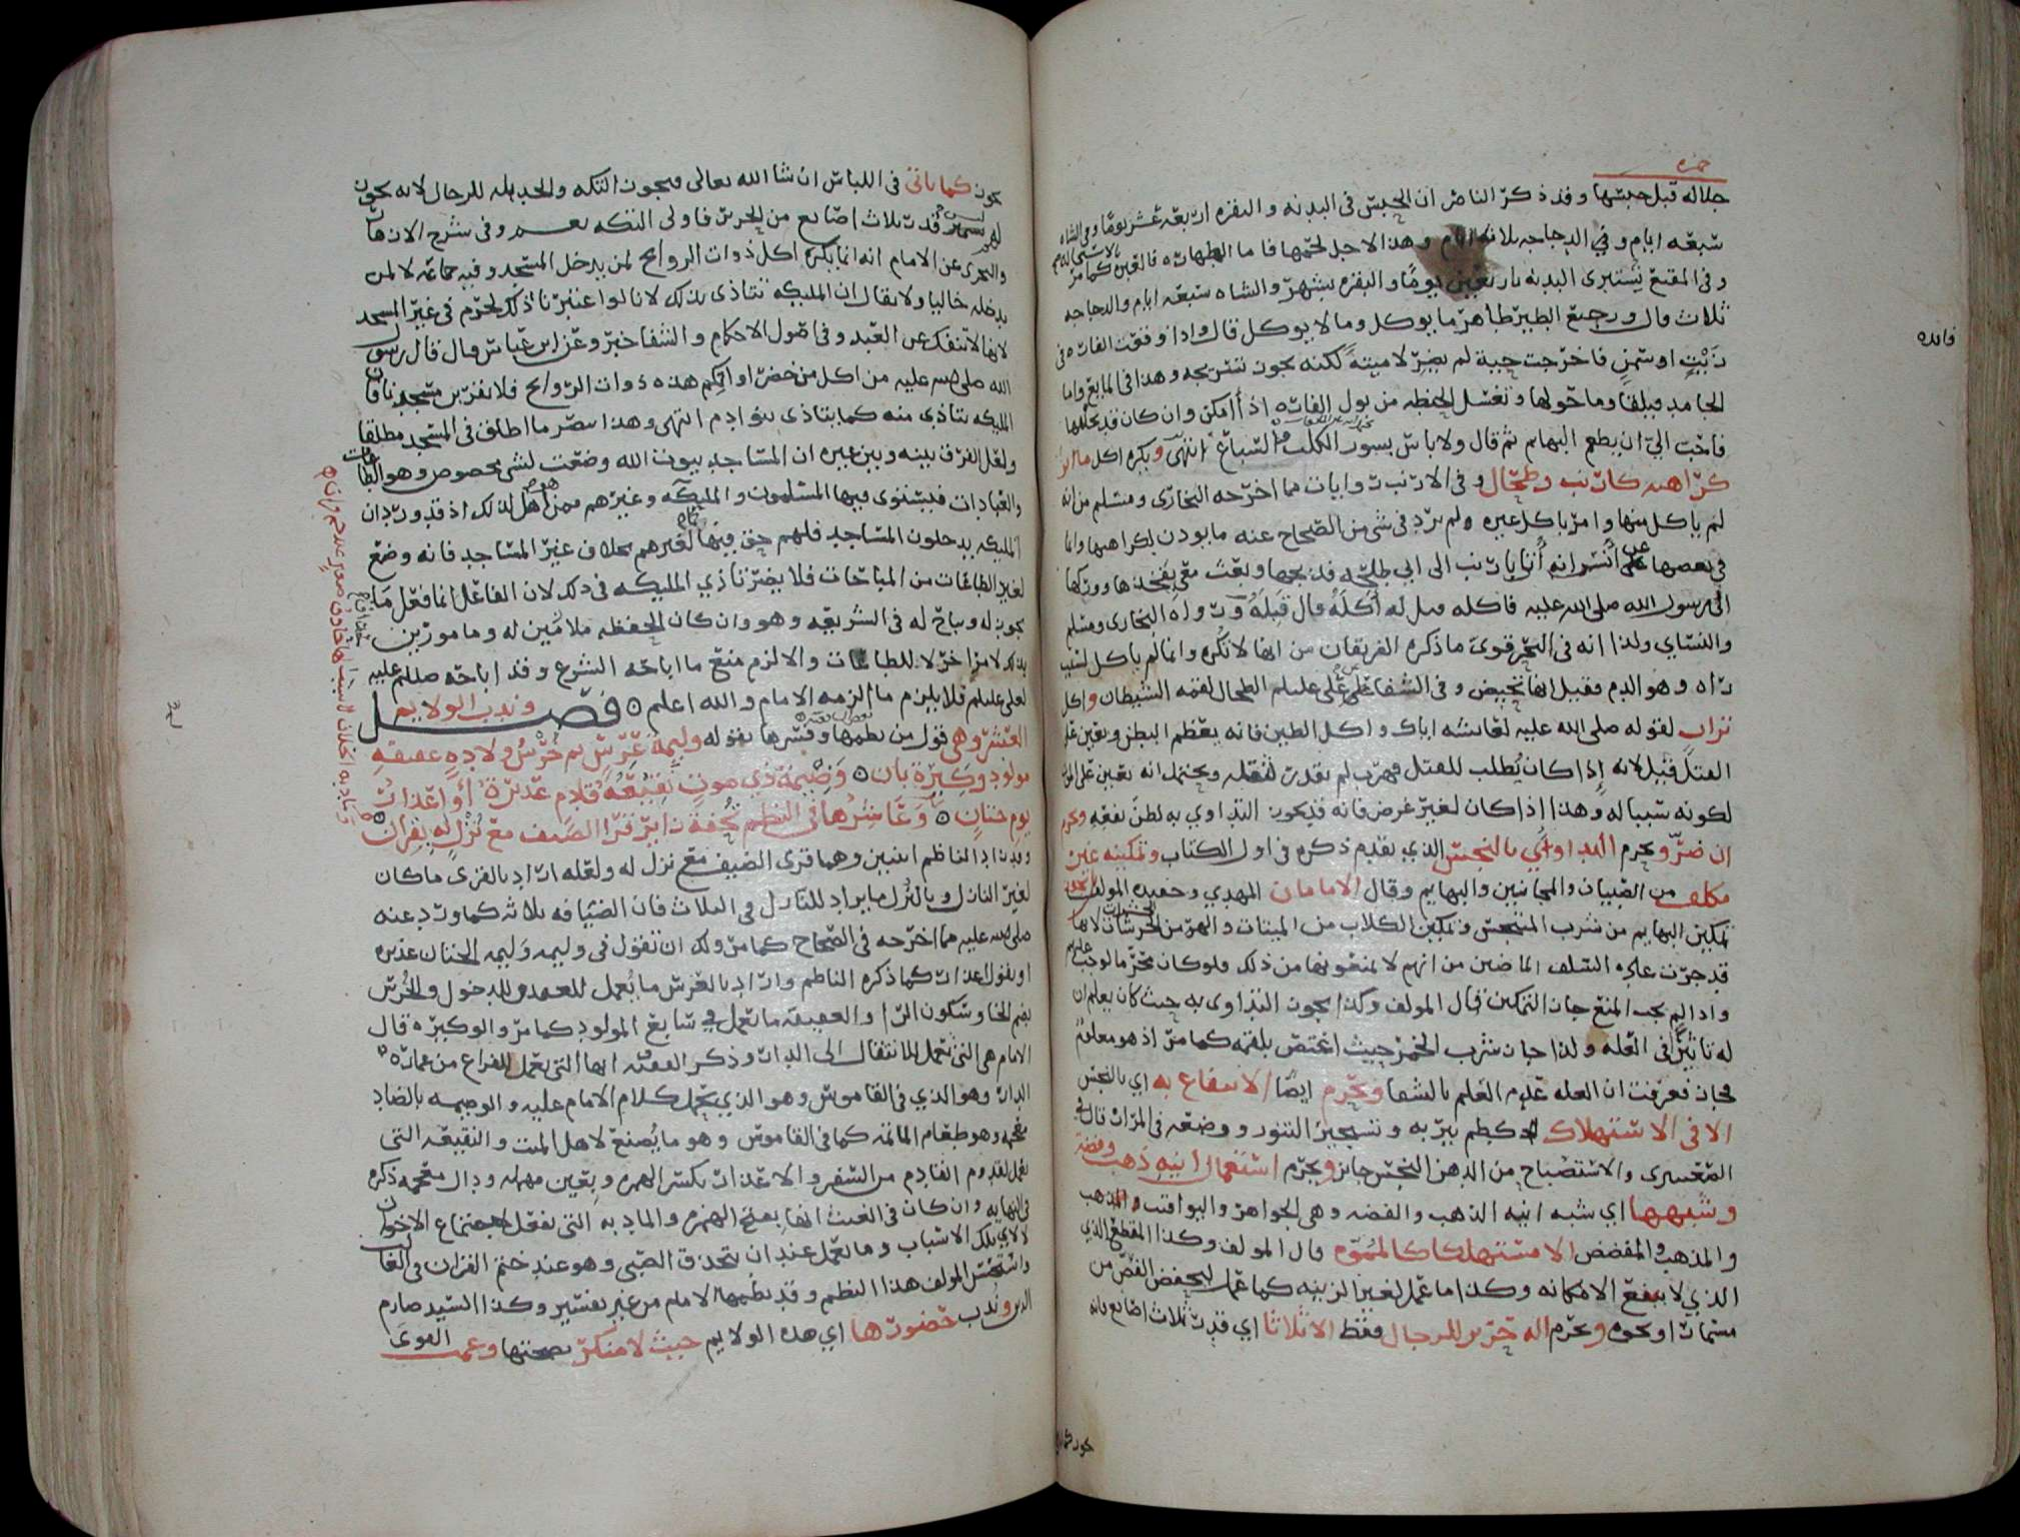 جلاله قبل حبسها وقد ذكر الناصر ان الحبس في البدنه والبقره اربعة عشر يوما وفي الشاه
سبعه ايام وفي الدجاجه ثلاثه ايام وهذا لاجل لحمها فاما
وفي المقنع تستبرى البدنه باربعين يوما والبقره بشهر والشاه سبعه ايام والدجاجه
ثلاث قال ورجيع الطير طاهر ما يوكل وما لا يوكل قال واذا وقعت الفاره في
زيت او سمن فاخرجت حية لم يضر لا ميتة لكنه يجوز تسريجه وهذا في المايع واما
الجامد فيلقا وما حولها وتغسل الحنطه من بول الفاره اذا امكن وان كان قد
فاحب الي ان يطعم البهايم ثم قال ولا باس بسور الكلب والسباع انتهى ويكره اكل
كراهته كارنب وطحال وفي الارنب روايات مما اخرجه البخاري ومسلم من انه
لم ياكل منها وامر باكل غيره ولم يرد في شي من الصحاح عنه ما يوذن بكراهتها وانما
في بعضها عن انس انه أتا بارنب الى ابي طلحه فذبحها وبعث معي بفخذها ووركها
الى رسول الله صلى الله عليه فاكله قيل له أكله قال قبله ورواه البخاري ومسلم
والنساي ولذا انه في البحر قوى ما ذكره الفريقان من انها لا تكره وانما لم ياكل لشيب
راه وهو الدم فقيل انها تحيض وفي الشفا عن علي عليلم الطحال لقمه الشيطان واكل
تراب لقوله صلى الله عليه لعايشه اياك واكل الطين فانه يعظم البطن ويعين على
القتل قيل لانه إذا كان يُطلب للقتل فهرب لم يقدر لثقله ويحتمل انه يعين على
لكونه سببا له وهذا اذا كان لغير غرض فانه قد يكون التداوي به لظن نفعه ويحرم
ان ضرّ ويحرم التداوي بالنجس الذي تقدم ذكره في اول الكتاب وتمكينه غير
مكلف من الصبيان والمجانين والبهايم وقال الامامان المهدي وحفيده المولف
تمكين البهايم من شرب المتنجس وتمكين الكلاب من الميتات والهر من الحرشات لانها
قد جرت عليه السلف الماضين من انهم لا يمنعونها من ذلك فلو كان محرما لوجب عليهم
واذا لم يجب المنع جاز التمكين قال المولف وكذا يجوز التداوي به حيث كان يعلم ان
له تاثيرًا في العله ولذا جاز شرب الخمر حيث اغتص بلقمه كما مر اذ هو معلوم
فجاز فعرفت ان العله عدم العلم بالشفا ويحرم ايضا الانتفاع به اي بالنجس
الا في الاستهلاك كطم بير به وتسجير التنور ووضعه في المزارع قال
والاستصباح من الدهن النجس جايز ويحرم استعمال انيه ذهب وفضه
وشبهها اي شبه انيه الذهب والفضه وهي الجواهر واليواقيت والمذهب
والمذهب والمفضض الا مستهلكا كالمموه قال المولف وكذا المقطع الذي
الذي لا ينفع الا مكانه وكذا ما عمل لغير الزينه كما عمل ليحفض الفص من
مسمار او نحوه ويحرم اله حرير للرجال فقط الا ثلاثا اي قدر ثلاث اصابع فانه
فايده
يجوز كما ياتي في اللباس ان شا الله تعالى فيجوز التكه والخديله للرجال لانه يجوز
لهم قدر ثلاث اصابع من الحرير فاولى التكه وفي شرح الازهار
والبحر عن الامام انه انما يكره اكل ذوات الروايح لمن يدخل المسجد وفيه جماعه لا لمن
يدخله خاليا ولا يقال ان المليكه تتاذى بذلك لانا لو اعتبرنا ذلك لحرم في غير المسجد
لانها لا تنفك عن العبد وفي اصول الاحكام والشفا خبر وعن ابن عباس قال قال رسول
الله صلى الله عليه من اكل من خضراواتكم هذه ذوات الروايح فلا يقربن مسجدنا فان
المليكه تتاذى منه كما يتاذى بنوا ادم انتهى وهذا ما اطلق في المسجد مطلقا
ولعل الفرق بينه وبين غيره ان المساجد بيوت الله وضعت لشي مخصوص وهو الطاعات
والعبادات فيستوي فيها المسلمون والمليكه وغيرهم ممن هو اهل لذلك اذ قد ورد ان
المليكه يدخلون المساجد فلهم حق فيها كغيرهم بخلاف غير المساجد فانه وضع
لغير الطاعات من المباحات فلا يضر تاذي المليكه في ذلك لان الفاعل انما فعل ما
يجوز له ويباح له في الشريعه وهو وان كان الحفظه ملازمين له ومامورين
بذلك لامر اخر لا للطاعات والا لزم منع ما اباحه الشرع وقد اباحه صللم عليه
لعلي عليلم فلا يلزم ما الزمه الامام والله اعلم ٥ فصل وندب الولايم
العشر وهي قول من نظمها وفسرها بقوله وليمة عرس ثم خُرس ولاده عقيقه
مولود وكيرة بان ٥ وضيمة ذي موت نقيعة قادم عذيرة او اعذار
يوم ختان ٥ وعاشرها في النظم تحفة زاير قرا الضيف مع نزل له بقران ٥
وزاد الناظم اثنين وهما قرى الضيف مع نزل له ولعله اراد بالقرى ما كان
لغير النازل وبالنزل ما يراد للنازل في الثلاث فان الضيافه ثلاثه كما ورد عنه
صلى الله عليه مما اخرجه في الصحاح كما مر ولك ان تقول في وليمه وليمه الختان عذيره
او تقول اعذار كما ذكره الناظم واراد بالعرس ما يُعمل للعقد والدخول والخُرس
بضم الخا وسكون الرا والعقيقه ما تعمل في سابع المولود كما مر والوكيره قال
الامام هي التي تعمل للانتقال الى الدار وذكر الفقيه انها التي تعمل للفراغ من عمارة
الدار وهو الذي في القاموس وهو الذي يحمل كلام الامام عليه والوضيمه بالضاد
معجمه وهو طعام الماتم كما في القاموس وهو ما يُصنع لاهل الميت والنقيعه التي
تعمل لقدوم القادم من السفر والاعذار بكسر الهمزه وبعين مهمله وذال معجمه ذكره
في النهايه وان كان في الغيث انها بفتح الهمزه والمادبه التي تفعل لاجتماع الاخوان
لا لاي تلك الاسباب وما تعمل عند ان يحذق الصبي وهو عند ختم القران في الغالب
واستحسن المولف هذا النظم وقد نظمها الامام من غير تفسير وكذا السيد صارم
الدين وندب حضورها اي هذه الولايم حيث لا منكر بصحتها وعمت